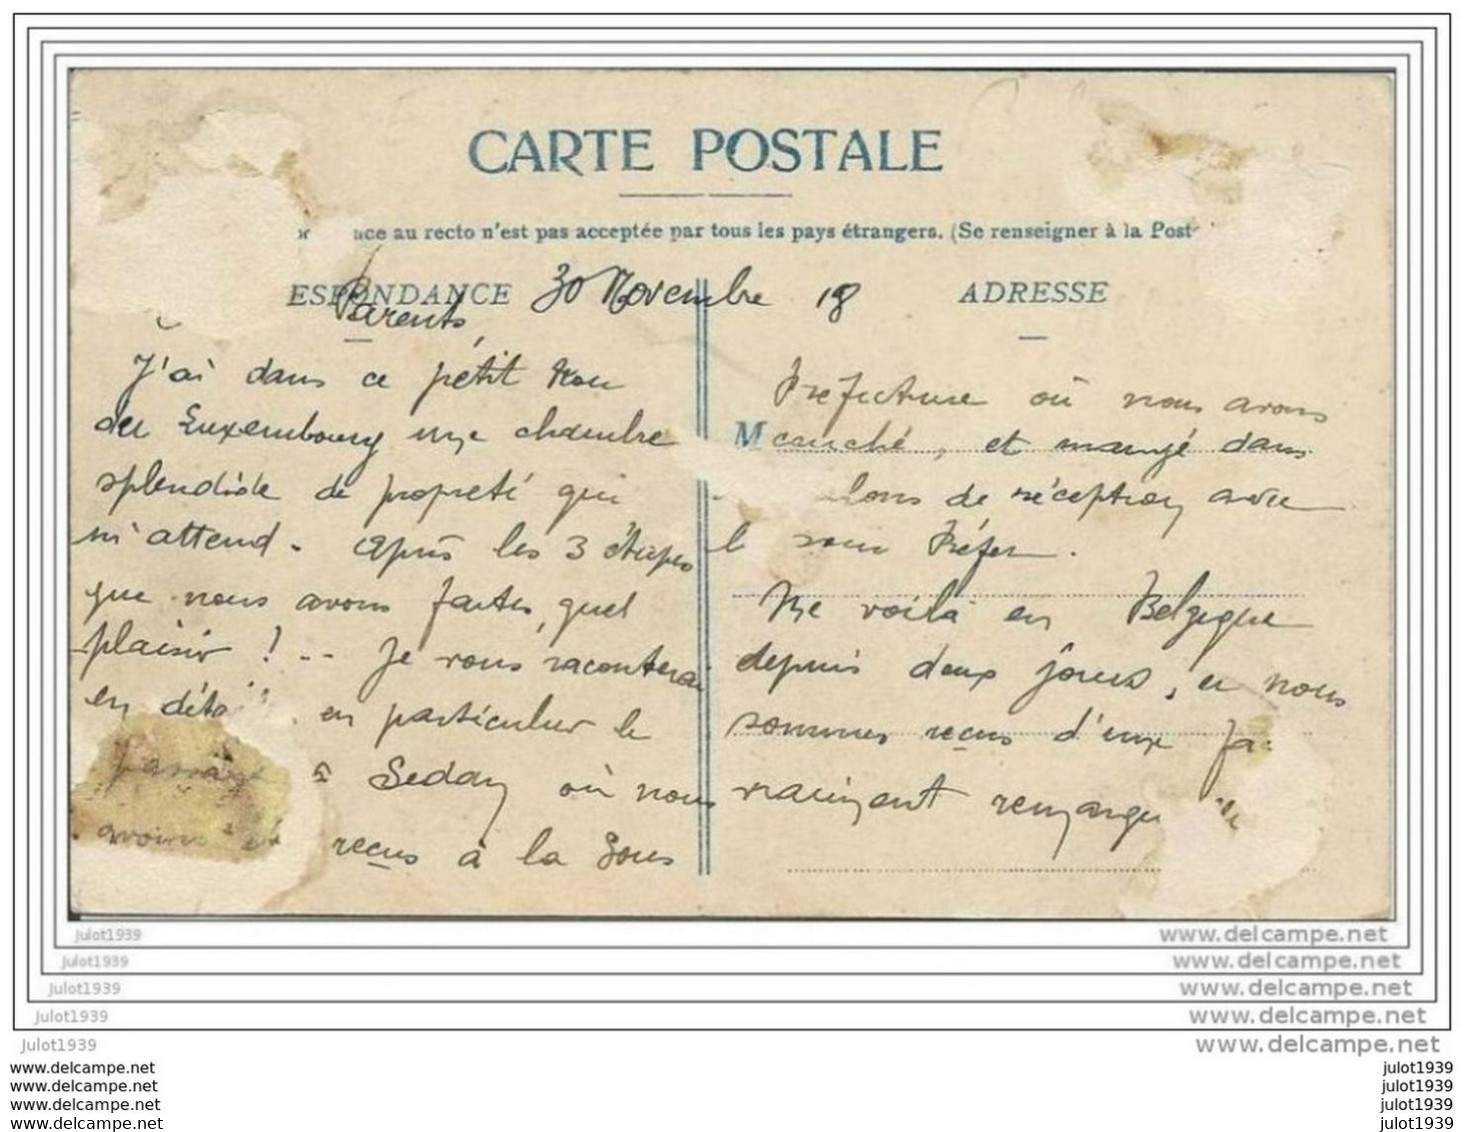 CARTE POSTALE
nce au recto n'est pas acceptée par tous les pays étrangers. (Se renseigner à la Post
ESPONDANCE
30 Novembre 18
ADRESSE
Parents,
J'ai dans ce petit
du Luxembourg une chambre
splendide de propreté qui
m'attend. Après les 3 étapes
que nous avons faites, quel
plaisir ! -- Je vous raconterai
en détail, en particulier le
passage à Sedan où nous
avons été reçus à la Sous
Préfecture où nous avons
M
couché, et mangé dans
de réception avec
le sous Préfet.
Me voilà en Belgique
depuis deux jours, et nous
sommes reçus d'une fa
vraiment remarqua
julot1939
www.delcampe.net
julot1939
www.delcampe.net
julot1939
www.delcampe.net
julot1939
www.delcampe.net
julot1939
www.delcampe.net
www.delcampe.net
julot1939
www.delcampe.net
julot1939
www.delcampe.net
julot1939
www.delcampe.net
julot1939